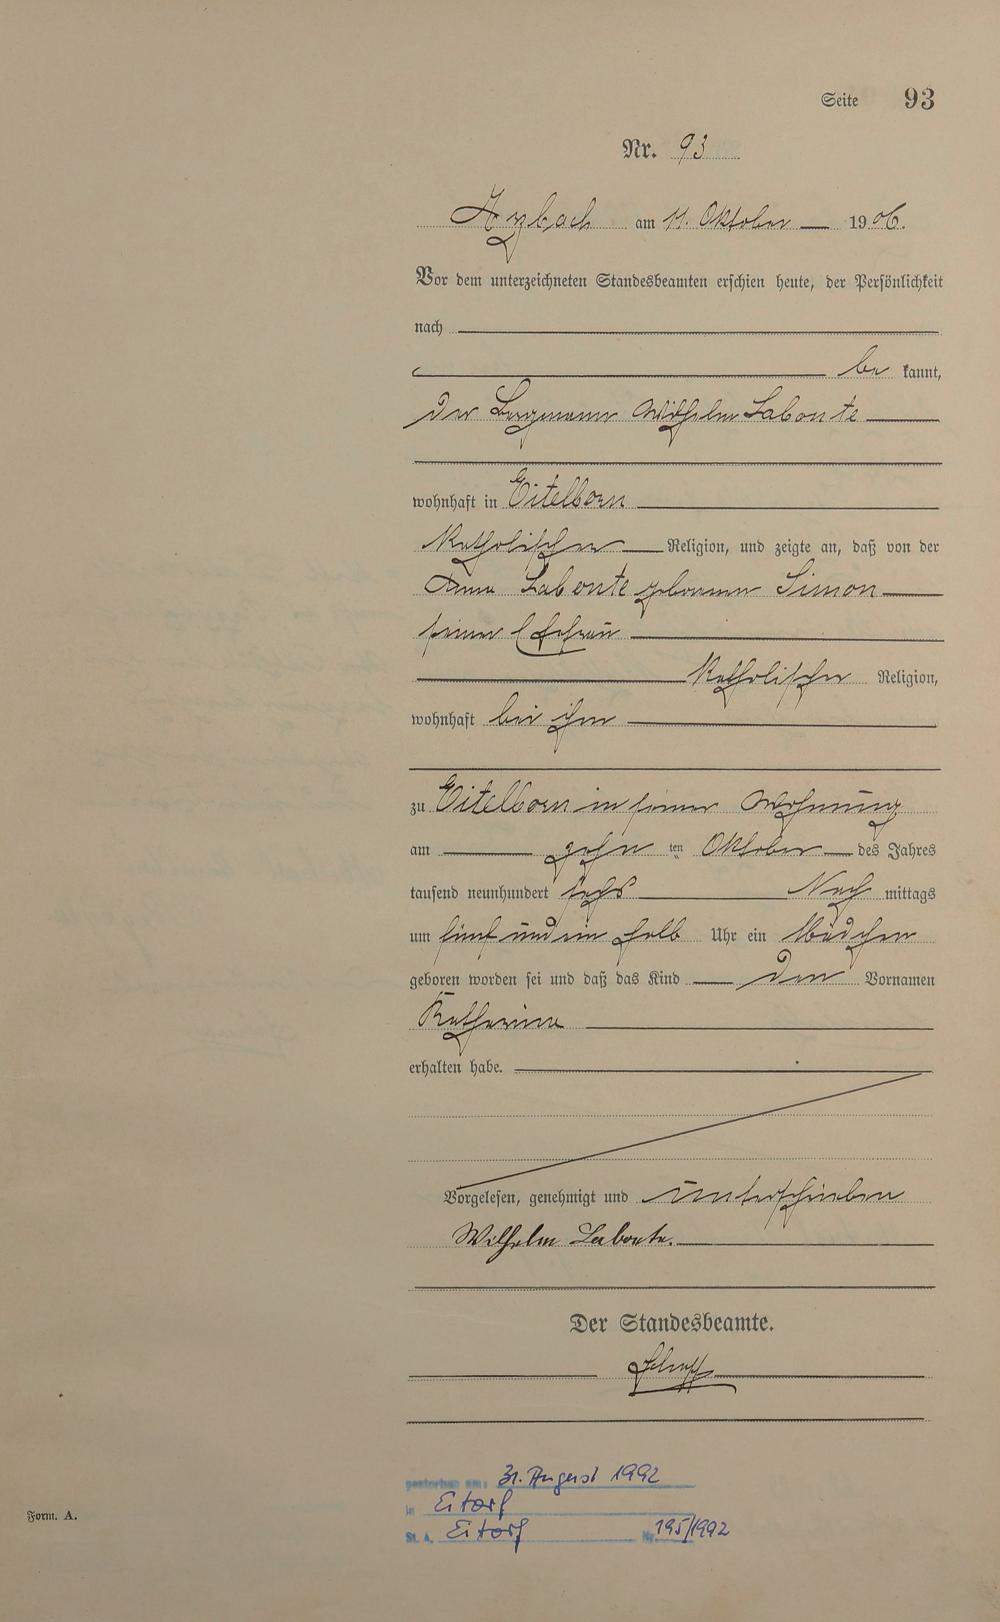 Seite 93
Nr. 93
Arzbach am 11. Oktober 1906.
Vor dem unterzeichneten Standesbeamten erschien heute, der Persönlichkeit
nach
be kannt,
der Bergmann Wilhelm Labonte
wohnhaft in Eitelborn
katholischer Religion, und zeigte an, daß von der
Anna Labonte geborenen Simon
seiner Ehefrau
katholischer Religion,
wohnhaft bei ihm
zu Eitelborn in seiner Wohnung
am zehn ten Oktober des Jahres
tausend neunhundert sechs Nach mittags
um fünf und ein halb Uhr ein Mädchen
geboren worden sei und daß das Kind den Vornamen
Katharina
erhalten habe.
Vorgelesen, genehmigt und unterschrieben
Wilhelm Labonte.
Der Standesbeamte.
gestorben am: 31. August 1992
in Eitorf
St. A. Eitorf Nr. 195/1992
Form. A.